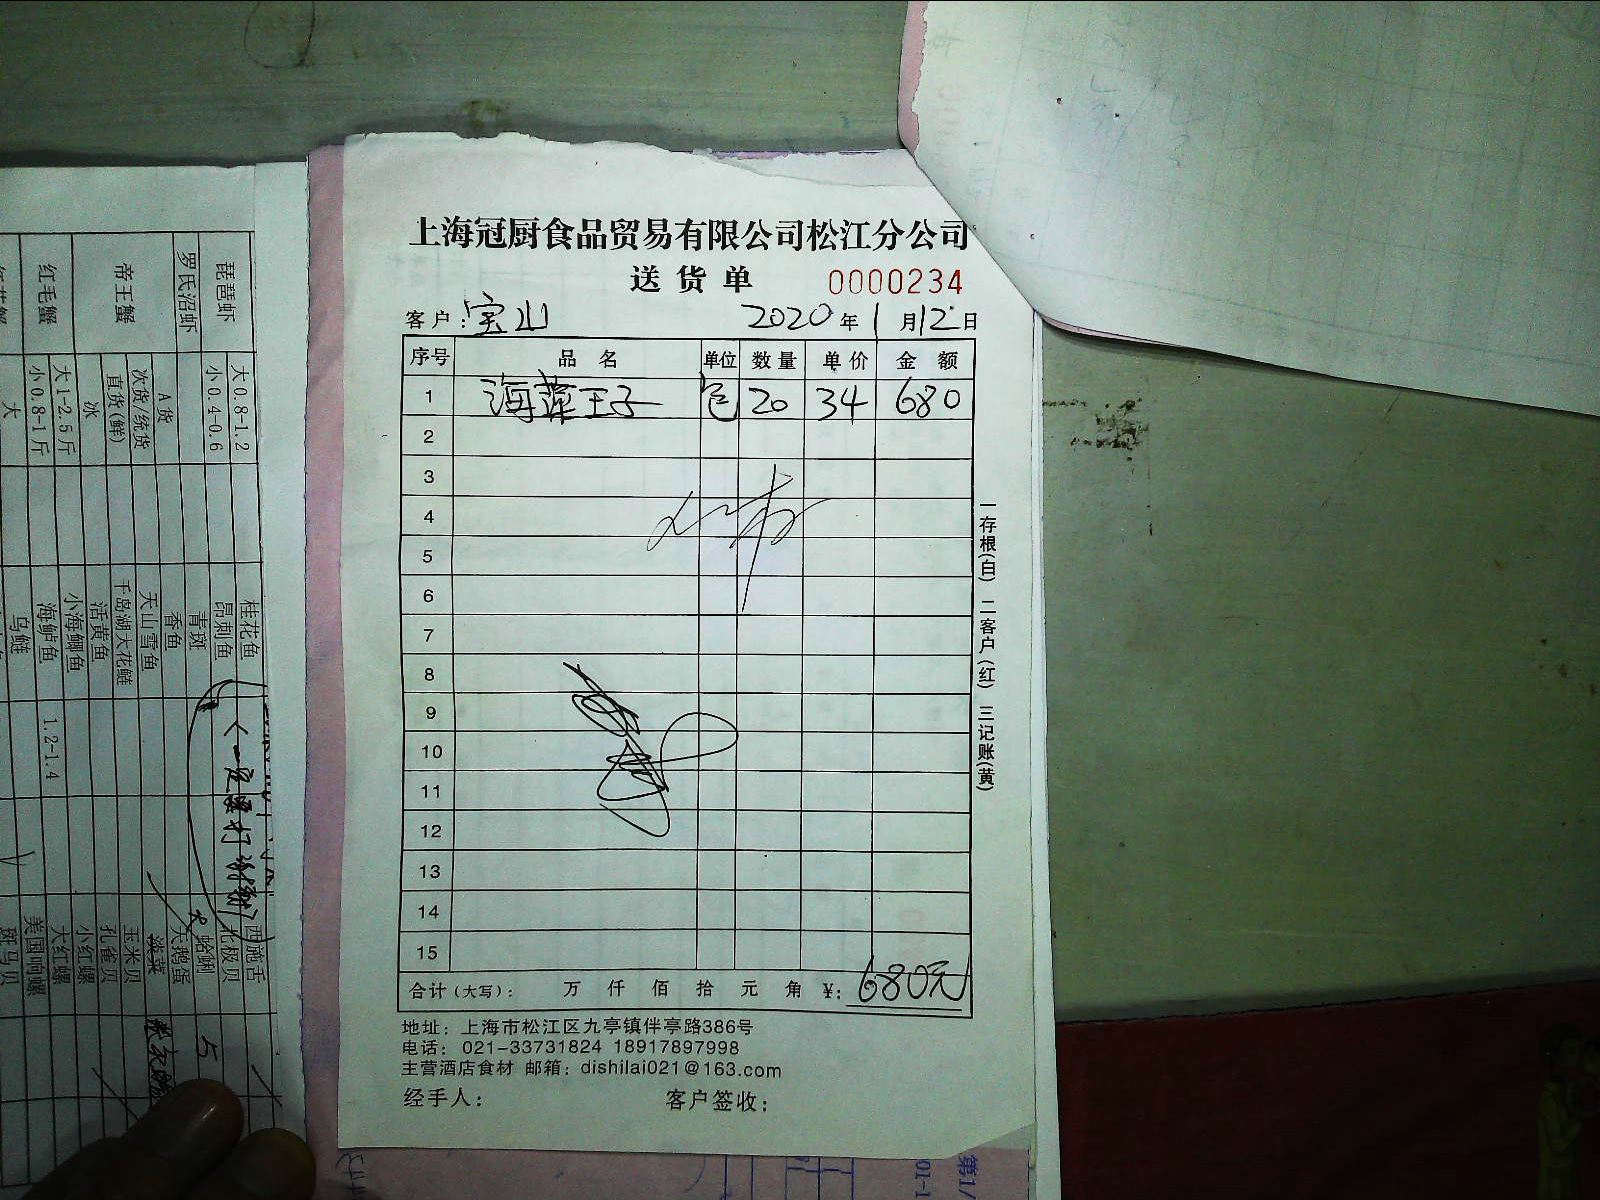 上海冠厨食品贸易有限公司松江分公司
送货单 0000234
客户：宝山 2020年1月12日
序号 品名 单位 数量 单价 金额
1 海藻王子 包 20 34 680
2
3
4
5
6
7
8
9
10
11
12
13
14
15
合计（大写）： 万 仟 佰 拾 元 角 ¥：680元
地址：上海市松江区九亭镇伴亭路386号
电话：021-33731824 18917897998
主营酒店食材 邮箱：dishilai021@163.com
经手人： 客户签收：
一存根(白) 二客户(红) 三记账(黄)
琵琶虾 大0.8-1.2
小0.4-0.6
罗氏沼虾
帝王蟹 A货
次货/统货
直货(鲜)
冰
红毛蟹 大1-2.5斤
小0.8-1斤
大
桂花鱼
昂刺鱼
青斑
香鱼
天山雪鱼
千岛湖大花鲢
活黄鱼
小海鲫鱼
海鲈鱼 1.2-1.4
乌鲢
西施舌
北极贝
蛤蜊 5
天鹅蛋
淡菜
玉米贝
孔雀贝
小红螺
大红螺
美国响螺
斑马贝
第1/
01-1